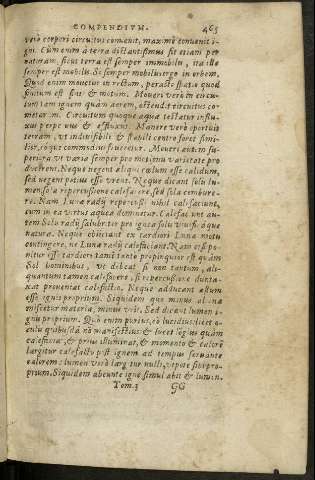 COMPENDIVM. 465
verò corpori circuitus conuenit, maximè conuenit i-
gni. Cùm enim à terra distantissimus sit etiam per
naturam, sicut terra est semper immobilis, ita ille
semper est mobilis. Si semper mobilis: ergo in orbem.
Quod enim mouetur in rectum, peracto spatio quod
finitum est sinit & motum. Moueri verò in circui-
tum tam ignem quàm aerem, ostendit circuitus co-
metarum. Circuitum quoque aqua testatur influ-
xus perpetuus & effluxus. Manere verò oportuit
terram, vt indiuisibili & stabili centro foret simi-
lis, & quo commodius frueretur. Moueri autem su-
periora vt varia semper pro motuum varietate pro-
ducerent. Neque negent aliqui cœlum esse calidum,
sed negent potius esse vrens. Neque dicant solis lu-
men sola repercussione calefacere, sed sola combure-
re. Nam Lunæ radij repercussi nihil calefaciunt,
cum in ea virtus aquea dominetur. Calefaciunt autem
Solis radij salubriter pro ignea solis viuificáque
natura. Neque obijciant ex tardiori Lunæ motu
contingere, ne Lunæ radij calefaciant. Nam etsi po-
nitur esse tardior: tamen tanto propinquior est quàm
Sol hominibus, vt debeat si non tantum, ali-
quantum tamen calefacere, si repercussione dunta-
xat proueniat calefactio. Neque adducant æstum
esse ignis proprium. Siquidem quo minus aliena
miscetur materia, minus vrit. Sed dicant lumen i-
gnis proprium. Quò enim purius, eò lucidius: licet o-
culis quibusdā nō manifestius: & lucet longius quàm
calefacit, & prius illuminat, & momento & calorē
largitur calefacto post ignem ad tempus seruante
calorem: lumen verò largitur nulli, vtpote sibi pro-
prium. Siquidem abeunte igne simul abit & lumen.
Tom. 3 GG